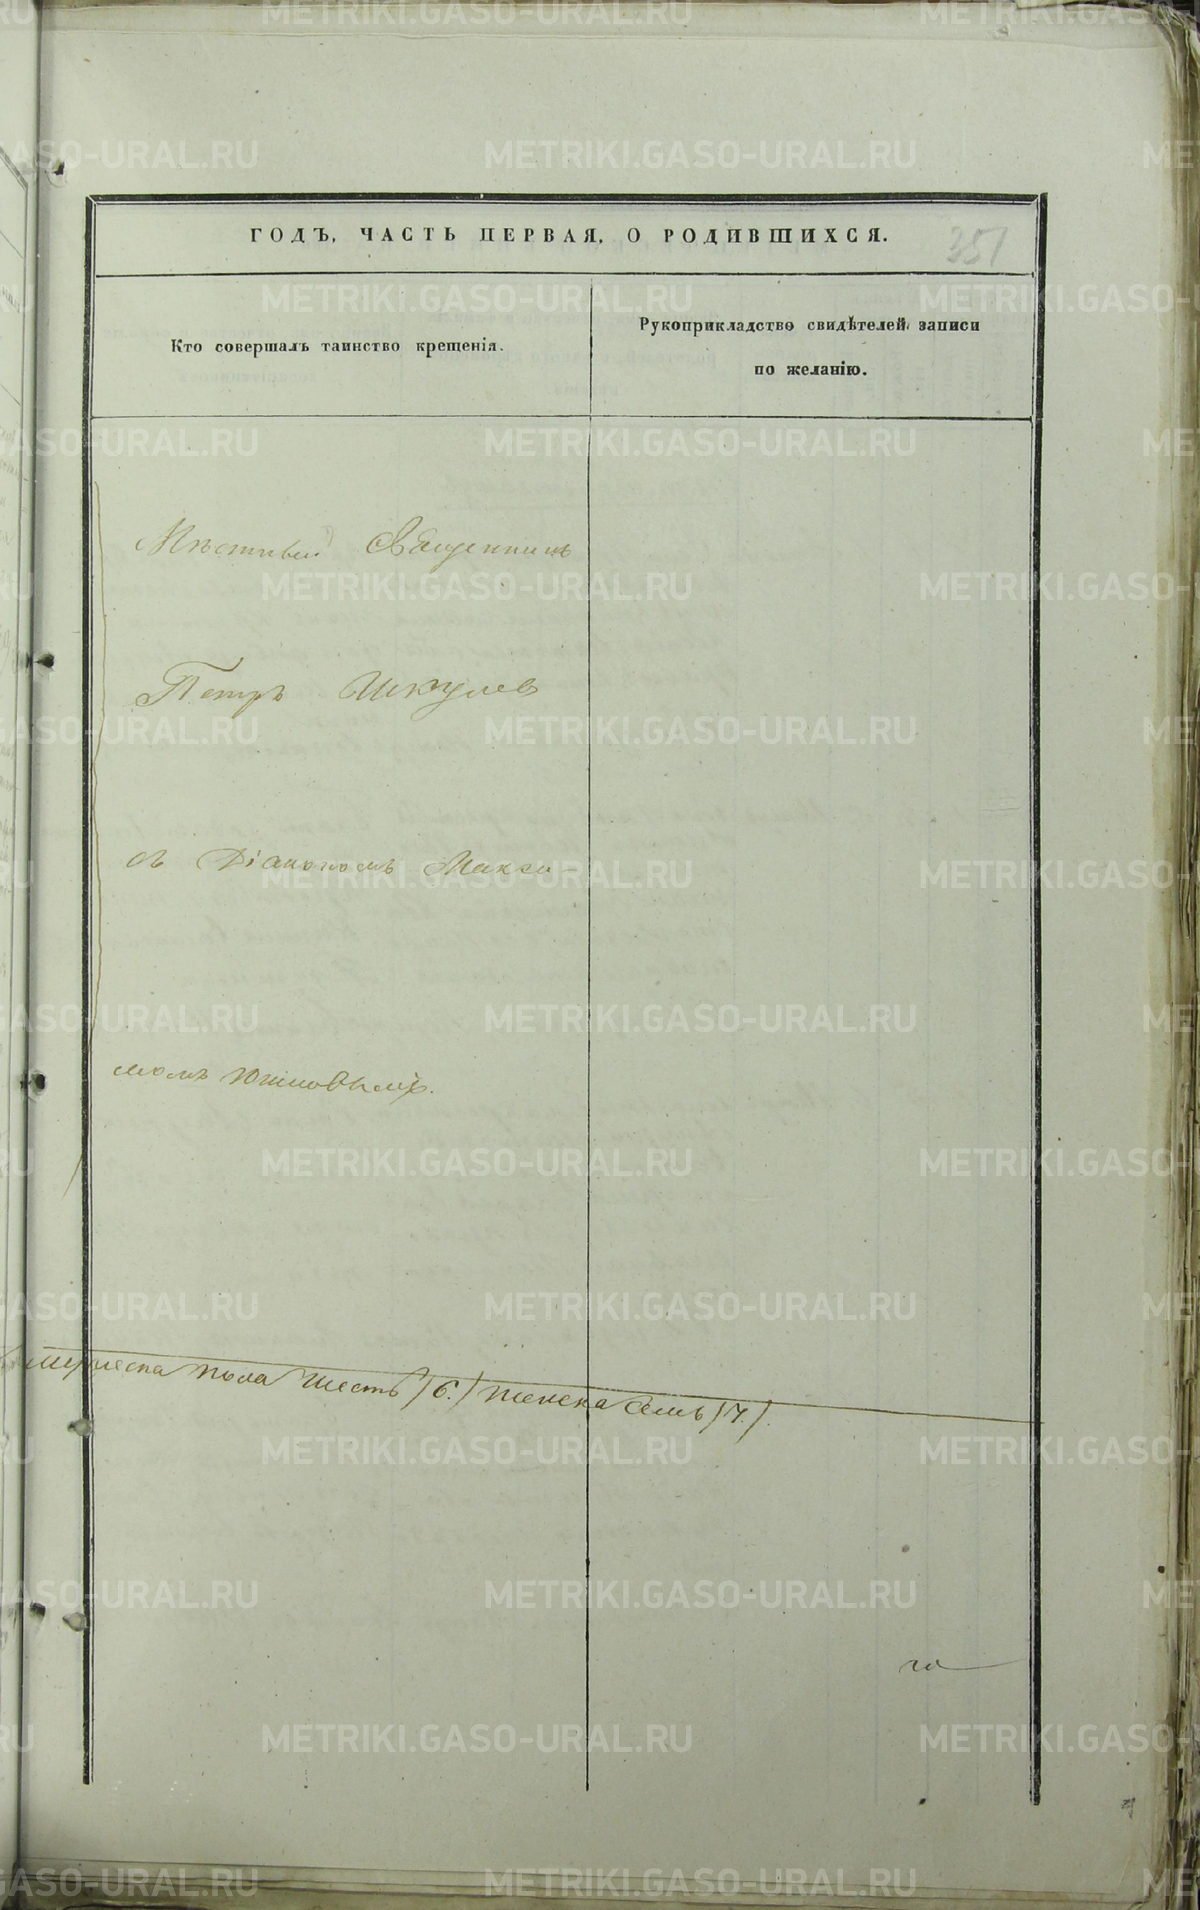 ГОДЪ, ЧАСТЬ ПЕРВАЯ, О РОДИВШИХСЯ.
351
Кто совершалъ таинство крещенія.
Рукоприкладство свидѣтелей записи
по желанію.
Мѣстный Священникъ
Петръ Шкулев
съ Діакономъ Макси-
момъ
мужеска пола шесть /6./ женска семь /7./
го
METRIKI.GASO-URAL.RU